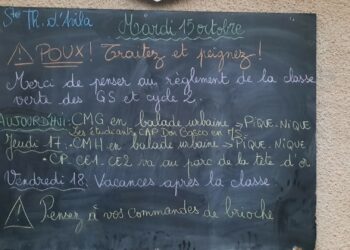 Ste Th. d'Avila
Mardi 15 octobre
POUX! Traitez et peignez!
Merci de penser au règlement de la classe
verte des GS et cycle 2,
AUJOURD'HUI: CM1 en balade urbaine → PIQUE-NIQUE
Les étudiants CAP Don Bosco en
Jeudi 17: CM1 en balade urbaine → PIQUE-NIQUE
• CP. CE1. CE2 va au parc de la tête d'or
Vendredi 18 Vacances après la classe
! Pensez à vos commandes de brioche